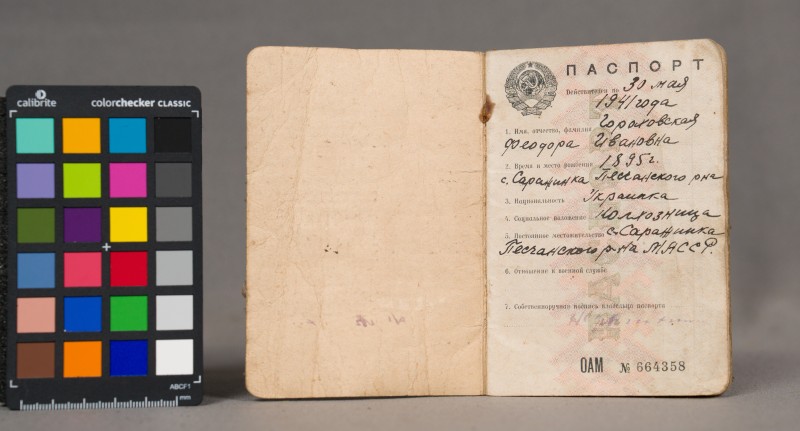 calibrite colorchecker CLASSIC
ABCF1
mm
ПАСПОРТ
Действителен по 30 мая
1941 года
Гороховская
1. Имя, отчество, фамилия
Феодора Ивановна
2. Время и место рождения 1895г.
с. Саражинка Песчанского р-на
3. Национальность Украинка
4. Социальное положение Колхозница
5. Постоянное местожительство с. Саражинка
Песчанского р-на МАССР.
6. Отношение к военной службе
7. Собственноручная подпись владельца паспорта
ОАМ № 664358